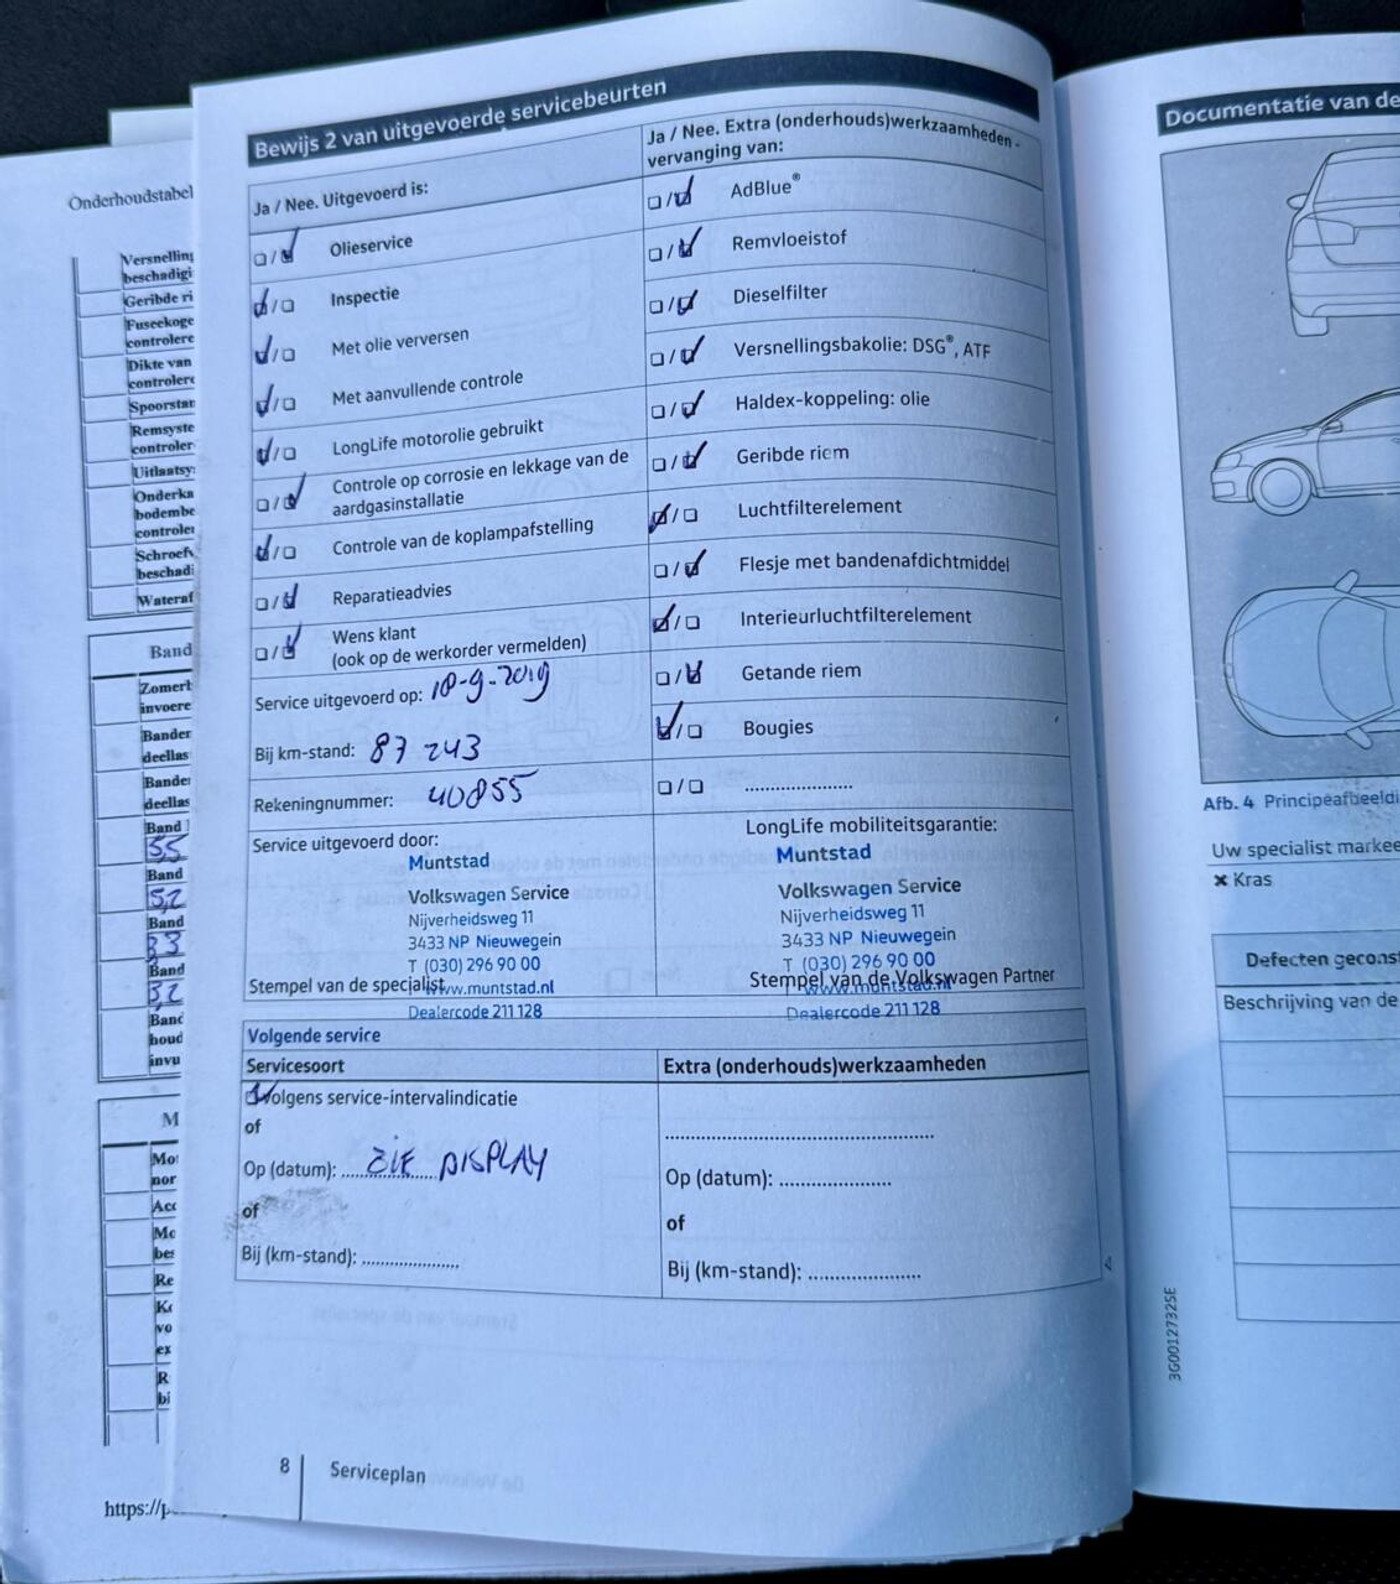 Onderhoudstabel
Versnelling
beschadigi
Geribde ri
Fuseekoge
controlere
Dikte van
controlere
Spoorstan
Remsyste
controler
Uitlaatsy
Onderka
bodembe
controle
Schroefv
beschadi
Wateraf
Band
Zomerb
invoere
Bander
deellas
Bande
deellas
Band
5,5
Band
5,2
Band
3,3
Band
3,2
Band
houd
invu
M
Mo
nor
Acc
Mo
bes
Re
Ko
vo
ex
R
bi
https://p
Bewijs 2 van uitgevoerde servicebeurten
Ja / Nee. Uitgevoerd is:
☐/☑ Olieservice
☑/☐ Inspectie
☑/☐ Met olie verversen
☑/☐ Met aanvullende controle
☑/☐ LongLife motorolie gebruikt
☐/☑ Controle op corrosie en lekkage van de
aardgasinstallatie
☑/☐ Controle van de koplampafstelling
☐/☑ Reparatieadvies
☐/☑ Wens klant
(ook op de werkorder vermelden)
Service uitgevoerd op: 18-9-2019
Bij km-stand: 87 243
Rekeningnummer: 40855
Service uitgevoerd door:
Muntstad
Volkswagen Service
Nijverheidsweg 11
3433 NP Nieuwegein
T (030) 296 90 00
Stempel van de specialist
www.muntstad.nl
Dealercode 211 128
Ja / Nee. Extra (onderhouds)werkzaamheden -
vervanging van:
☐/☑ AdBlue®
☐/☑ Remvloeistof
☐/☑ Dieselfilter
☐/☑ Versnellingsbakolie: DSG®, ATF
☐/☑ Haldex-koppeling: olie
☐/☑ Geribde riem
☑/☐ Luchtfilterelement
☐/☑ Flesje met bandenafdichtmiddel
☑/☐ Interieurluchtfilterelement
☐/☑ Getande riem
☑/☐ Bougies
☐/☐ ....................
LongLife mobiliteitsgarantie:
Muntstad
Volkswagen Service
Nijverheidsweg 11
3433 NP Nieuwegein
T (030) 296 90 00
Stempel van de Volkswagen Partner
www.muntstad.nl
Dealercode 211 128
Volgende service
Servicesoort
☑ Volgens service-intervalindicatie
of
Op (datum): ZIE DISPLAY
of
Bij (km-stand): ....................
Extra (onderhouds)werkzaamheden
..................................................
Op (datum): ....................
of
Bij (km-stand): ....................
8 Serviceplan
Documentatie van de
Afb. 4 Principeafbeeldi
Uw specialist markee
× Kras
Defecten gecons
Beschrijving van de
3G0012732SE